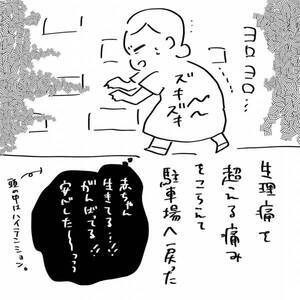 ヨロヨロ…
ズキ〜
ズキ〜
生理痛を
超える痛み
をこらえて
駐車場へ戻った
赤ちゃん
生きてる…!!
がんばってる!!
安心した〜〜っっ
頭の中はハイテンション。